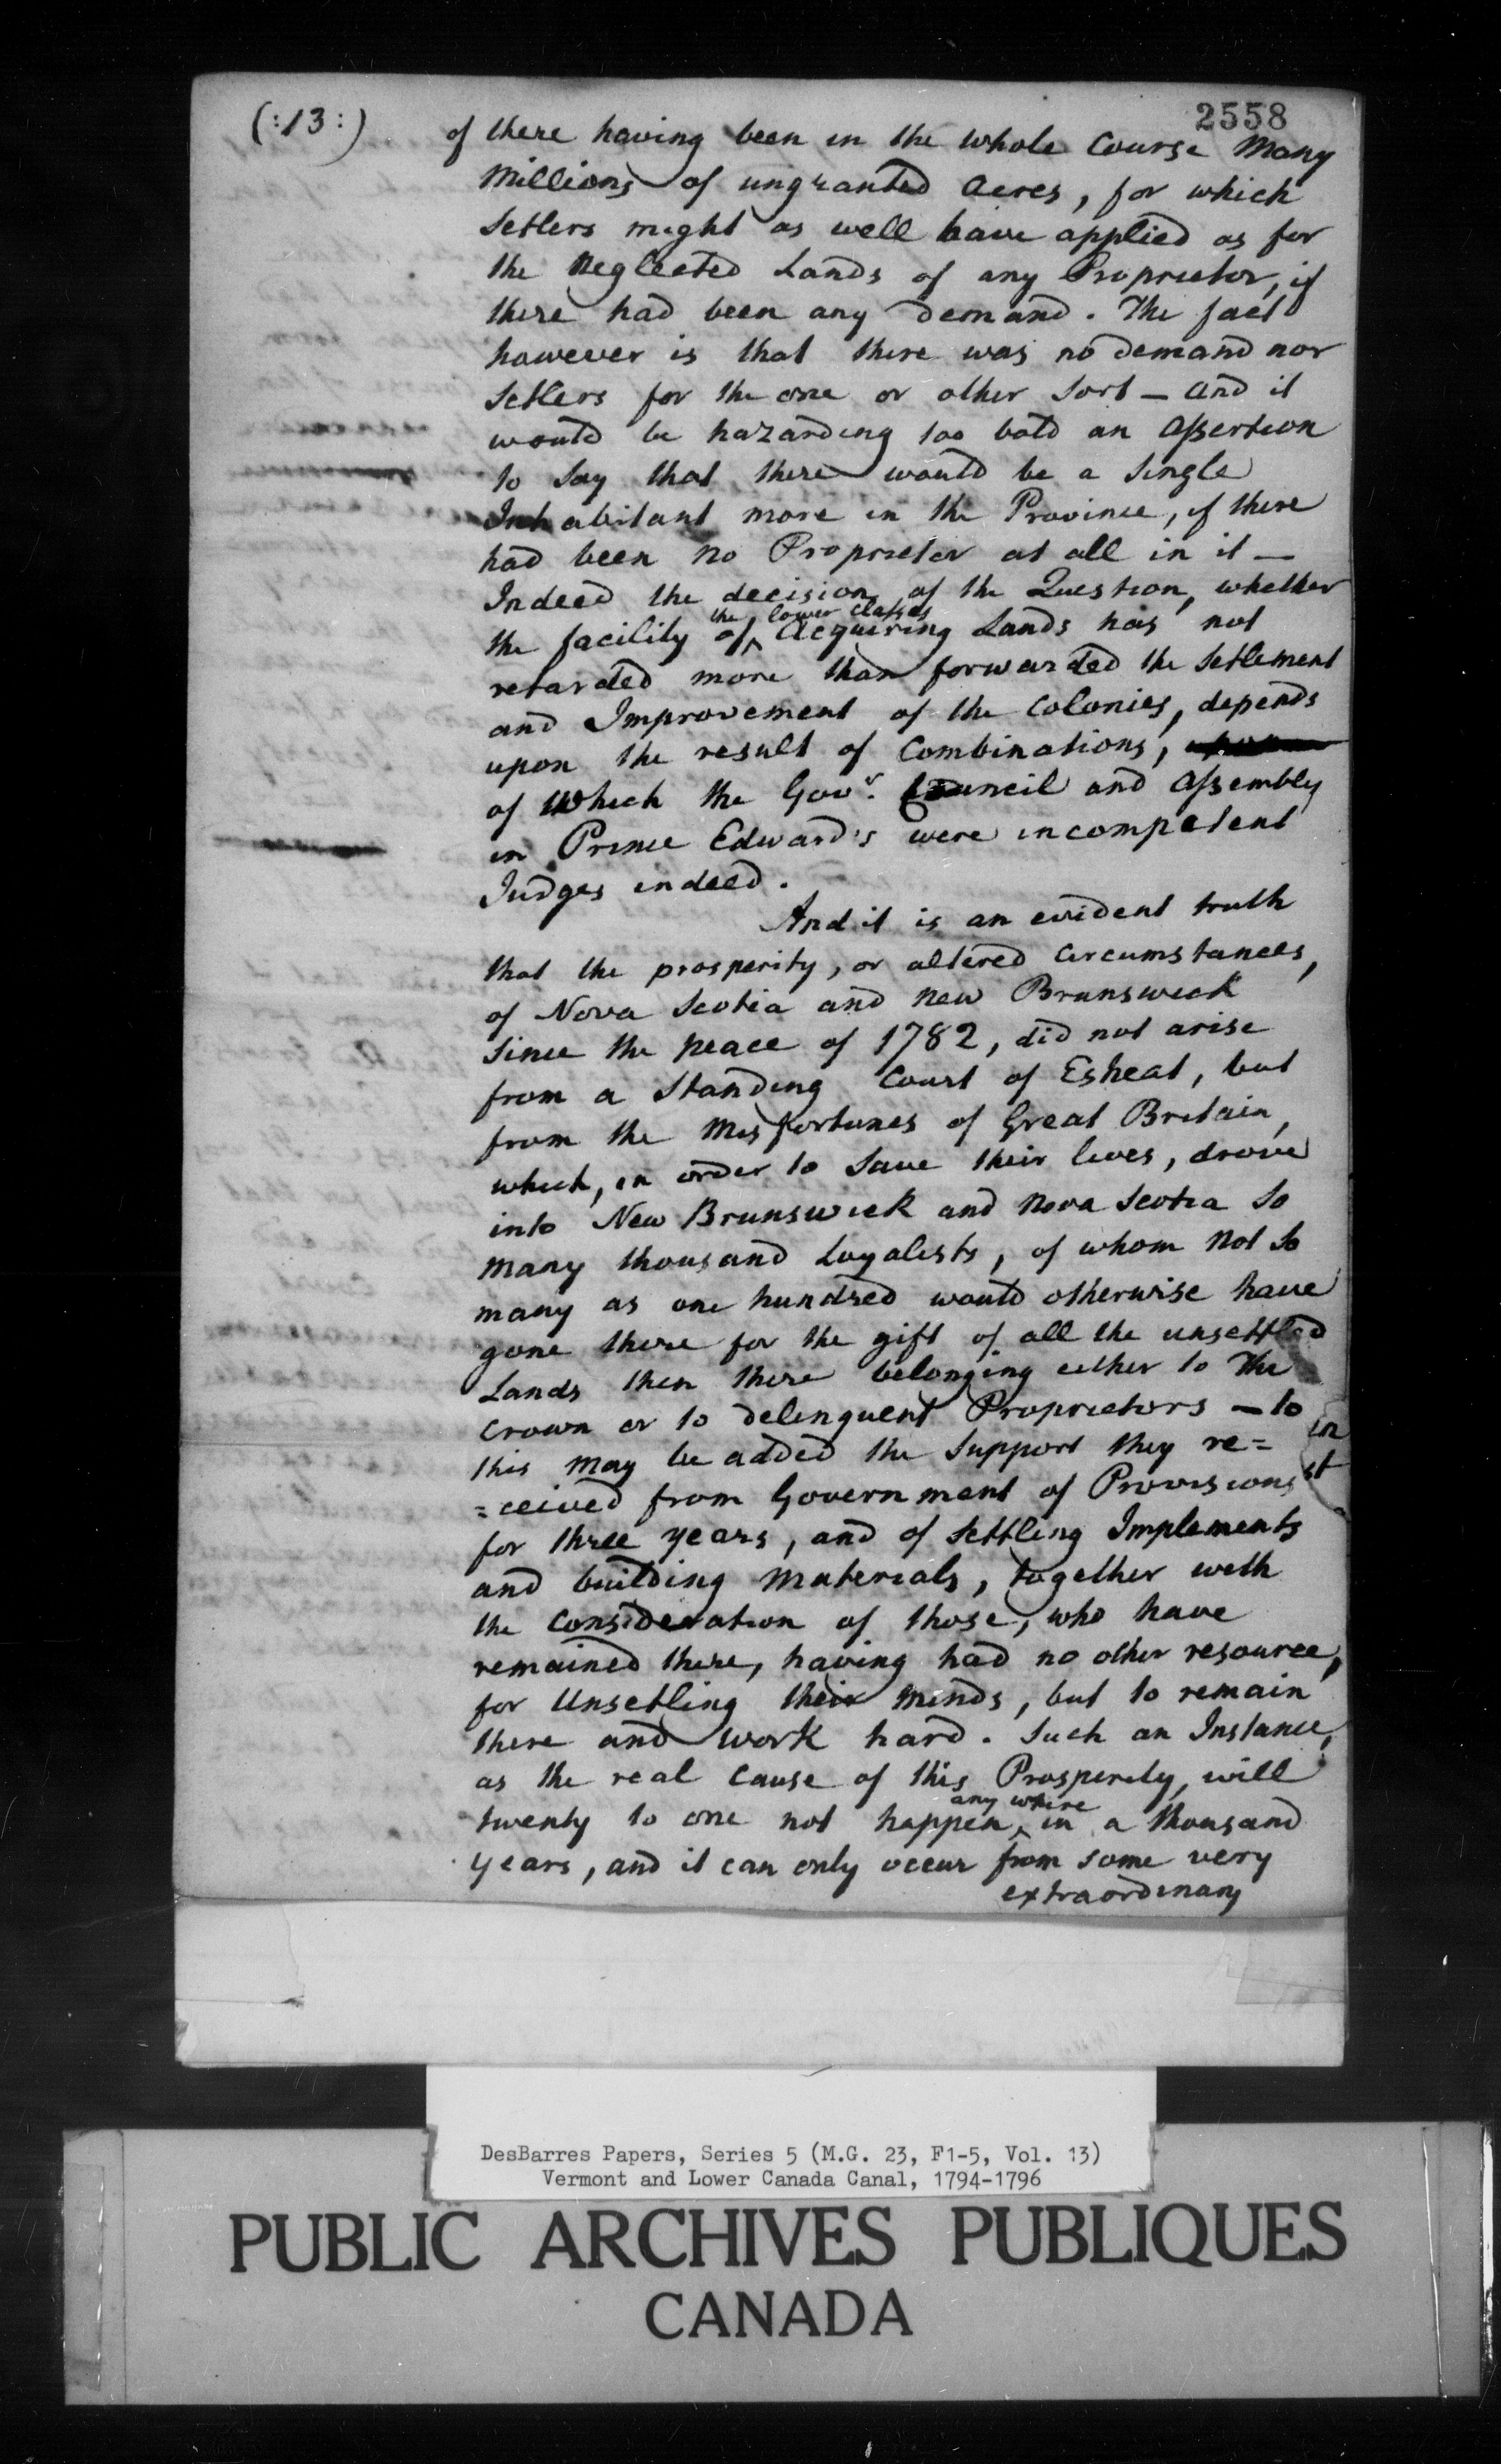 (:13:)
2558
of there having been in the whole Course Many
Millions of ungranted Acres, for which
Setlers might as well have applied as for
the Neglected Lands of any Proprietor, if
there had been any demand. The fact
however is that there was no demand nor
Setlers for the one or other Sort — And it
would be hazarding too bold an Assertion
to Say that there would be a Single
Inhabitant more in the Province, if there
had been no Proprietor at all in it —
Indeed the decision of the Question, whether
the lower Classes
the facility of ‸ Acquiring Lands has not
retarded more than forwarded the Setlement
and Improvement of the Colonies, depends
upon the result of Combinations,
of which the Govr. Council and Assembly
in Prince Edward's were incompetent
Judges indeed.
And it is an evident truth
that the prosperity, or altered Circumstances,
of Nova Scotia and New Brunswick
Since the peace of 1782, did not arise
from a Standing Court of Esheat, but
from the Misfortunes of Great Britain,
which, in order to Save their lives, drove
into New Brunswick and Nova Scotia So
many thousand Loyalists, of whom Not So
many as one hundred would otherwise have
gone there for the gift of all the unsettled
Lands then there belonging either to The
Crown or to delinquent Proprietors — to
this may be added the Support they re=
=ceived from Government of Provisions
for three years, and of Settling Implements
and building Materials, together with
the Consideration of those, who have
remained there, having had no other resource,
for Unsetling their Minds, but to remain
there and work hard. Such an Instance,
as the real Cause of this Prosperity, will
any where
twenty to one not happen ‸ in a thousand
years, and it can only occur from some very
extraordinary
in
st
DesBarres Papers, Series 5 (M.G. 23, F1-5, Vol. 13)
Vermont and Lower Canada Canal, 1794-1796
PUBLIC ARCHIVES PUBLIQUES
CANADA